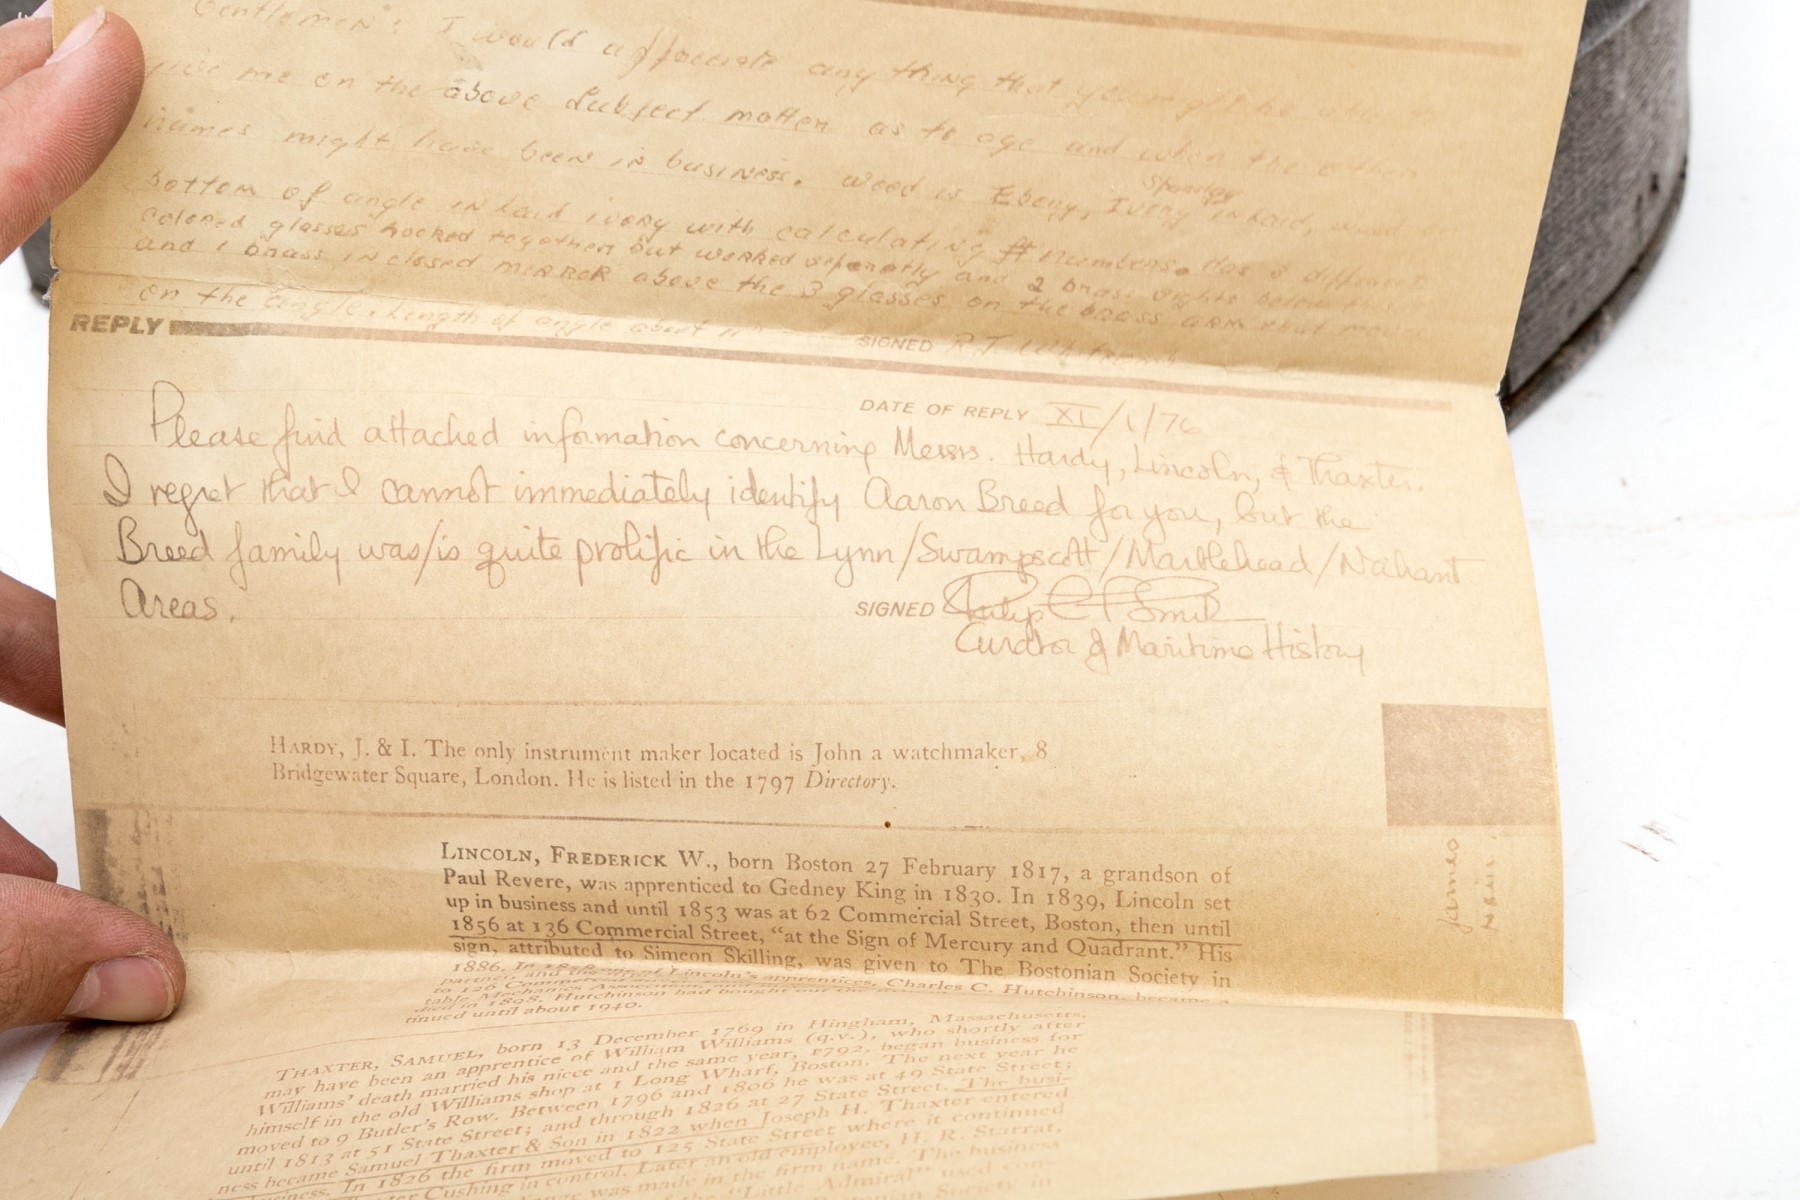 Gentlemen: I would appreciate any thing that you might be able to
give me on the above subject matter as to age and when the other
names might have been in business. Wood is Ebony, Ivory inlaid,
bottom of angle inlaid ivory with calculating # numbers. Has 3 different
colored glasses hooked together but worked seperatly and 2 brass sights below this
and 1 brass inclosed mirror above the 3 glasses on the brass arm that moves
on the angle. Length of angle about 11"
REPLY
SIGNED R.T.
DATE OF REPLY XI/1/76
Please find attached information concerning Messrs. Hardy, Lincoln, & Thaxter.
I regret that I cannot immediately identify Aaron Breed for you, but the
Breed family was/is quite prolific in the Lynn/Swampscott/Marblehead/Nahant
Areas.
SIGNED Philip C F Smith
Curator of Maritime History
HARDY, J. & I. The only instrument maker located is John a watchmaker, 8
Bridgewater Square, London. He is listed in the 1797 Directory.
LINCOLN, FREDERICK W., born Boston 27 February 1817, a grandson of
Paul Revere, was apprenticed to Gedney King in 1830. In 1839, Lincoln set
up in business and until 1853 was at 62 Commercial Street, Boston, then until
1856 at 136 Commercial Street, "at the Sign of Mercury and Quadrant." His
sign, attributed to Simeon Skilling, was given to The Bostonian Society in
1886. In of Lincoln's apprentices, Charles C. Hutchinson, became a
partner, and
to 126 Commercial
table Mechanics Association,
died in 1898. Hutchinson had bought out the
tinued until about 1940.
THAXTER, SAMUEL, born 13 December 1769 in Hingham, Massachusetts,
may have been an apprentice of William Williams (q.v.), who shortly after
Williams' death married his niece and the same year, 1792, began business for
himself in the old Williams shop at 1 Long Wharf, Boston. The next year he
moved to 9 Butler's Row. Between 1796 and 1806 he was at 49 State Street;
until 1813 at 51 State Street; and through 1826 at 27 State Street. The busi-
ness became Samuel Thaxter & Son in 1822 when Joseph H. Thaxter entered
business. In 1826 the firm moved to 125 State Street where it continued
Cushing in control. Later an old employee, H. R. Starrat,
was made in the firm name. The business
of the "Little Admiral" used con-
Bostonian Society in
James